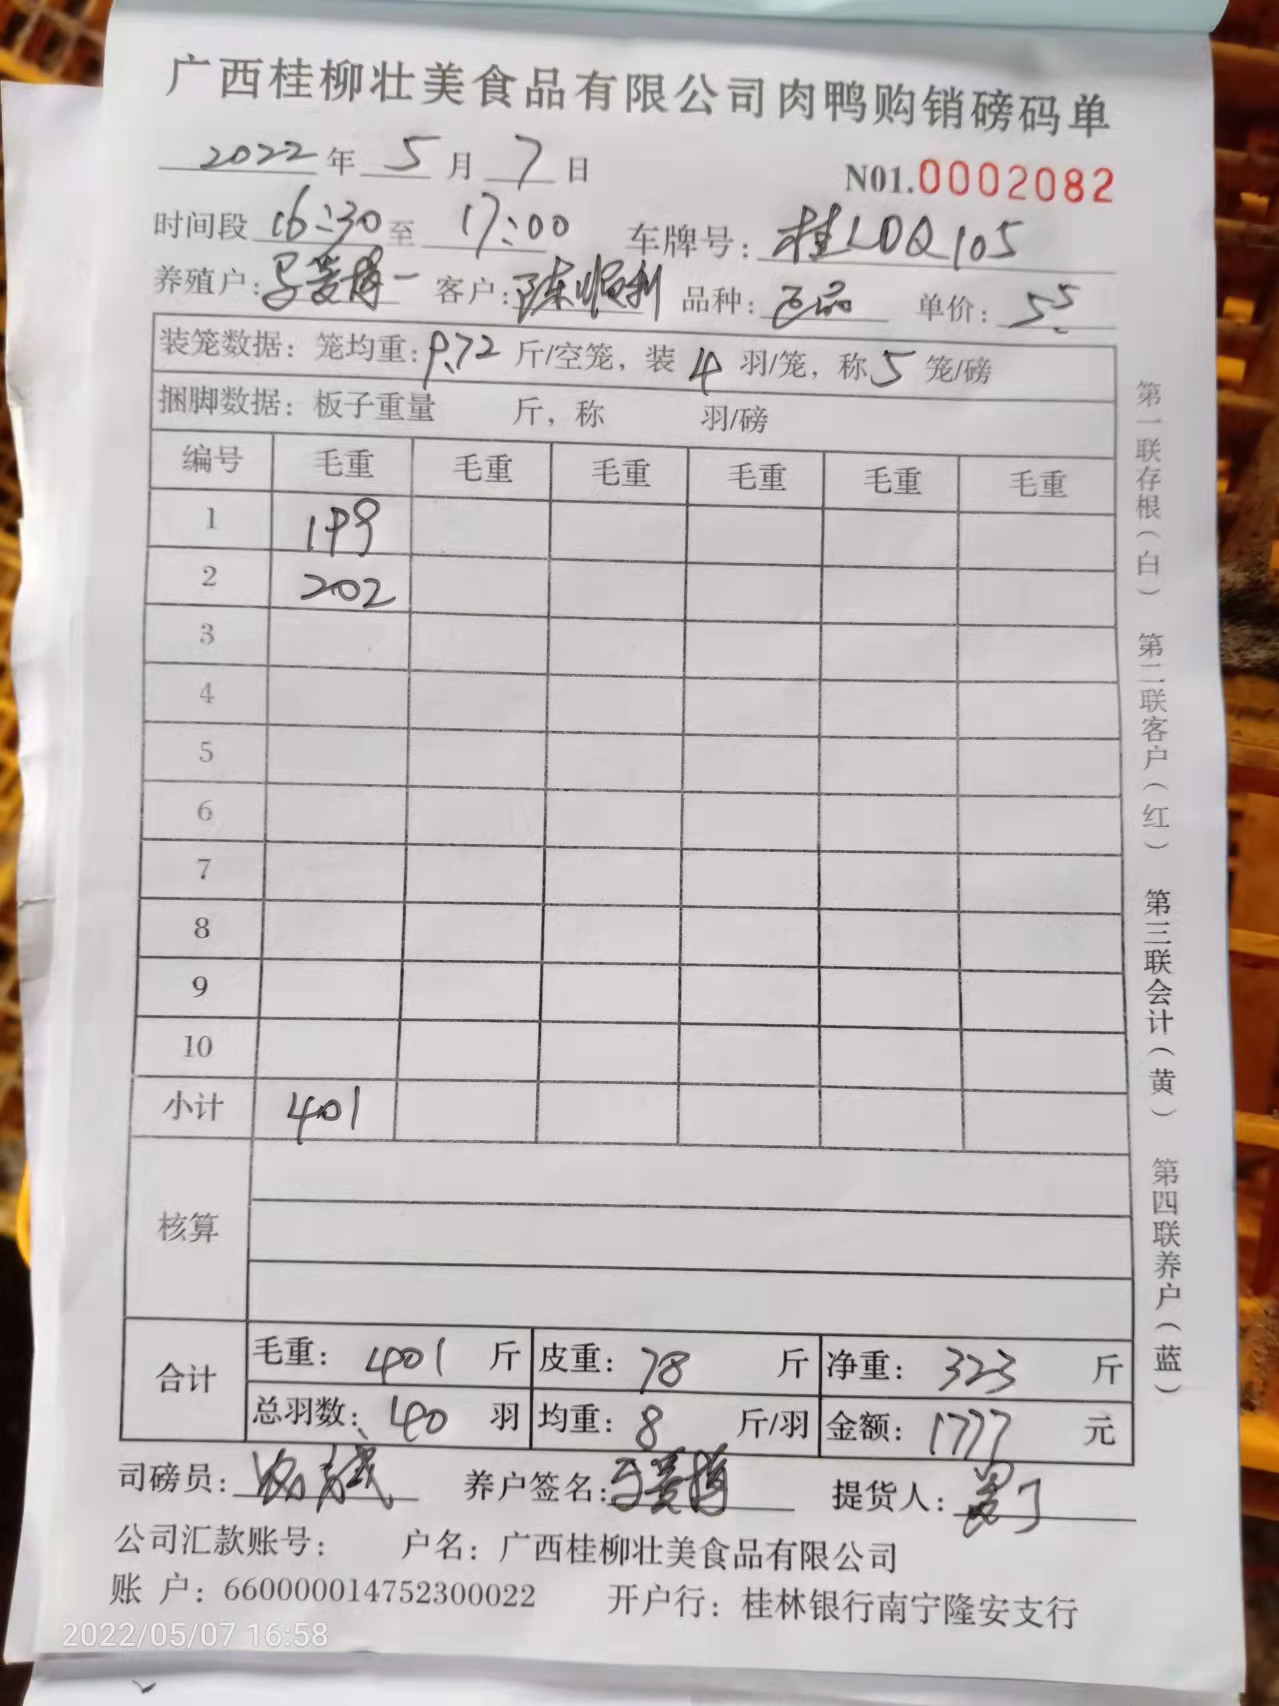 广西桂柳壮美食品有限公司肉鸭购销磅码单
2022年 5月 7日 N01.0002082
时间段 16:30 至 17:00 车牌号: 桂LDQ105
养殖户: 客户: 陈顺利 品种: 正品 单价: 5.5
装笼数据: 笼均重: 9.72 斤/空笼, 装 4 羽/笼, 称 5 笼/磅
捆脚数据: 板子重量 斤, 称 羽/磅
编号 毛重 毛重 毛重 毛重 毛重 毛重
1 199
2 202
3
4
5
6
7
8
9
10
小计 401
核算
合计 毛重: 401 斤 皮重: 78 斤 净重: 323 斤
总羽数: 40 羽 均重: 8 斤/羽 金额: 1777 元
司磅员: 养户签名: 提货人:
公司汇款账号: 户名: 广西桂柳壮美食品有限公司
账 户: 660000014752300022 开户行: 桂林银行南宁隆安支行
第一联存根(白) 第二联客户(红) 第三联会计(黄) 第四联养户(蓝)
2022/05/07 16:58